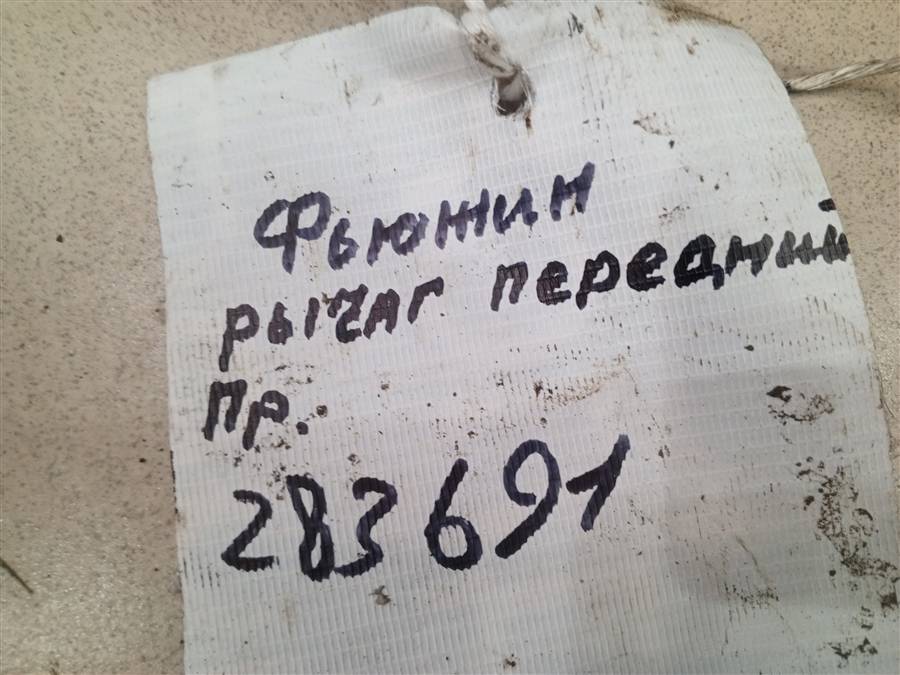 Фьюжин
рычаг передний
пр.
283691